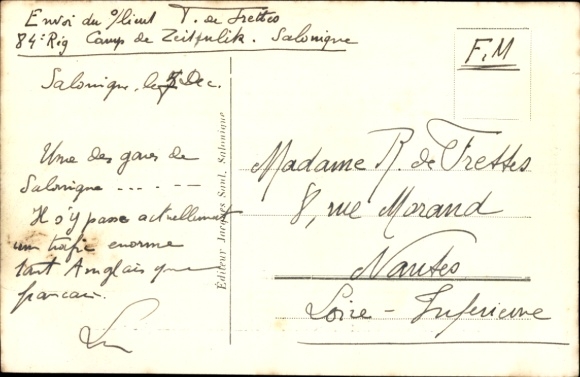 Envoi du s/lieut T. de Frettes
84e Rég Camp de Zeitenlik. Salonique
F.M
Salonique, le 5 Dec.
Une des gares de
Salonique ------
Il s'y passe actuellement
un trafic enorme
tant Anglais que
francais.
Editeur Jacques Saul, Salonique
Madame R. de Frettes
8, rue Morand
Nantes
Loire-Inferieure